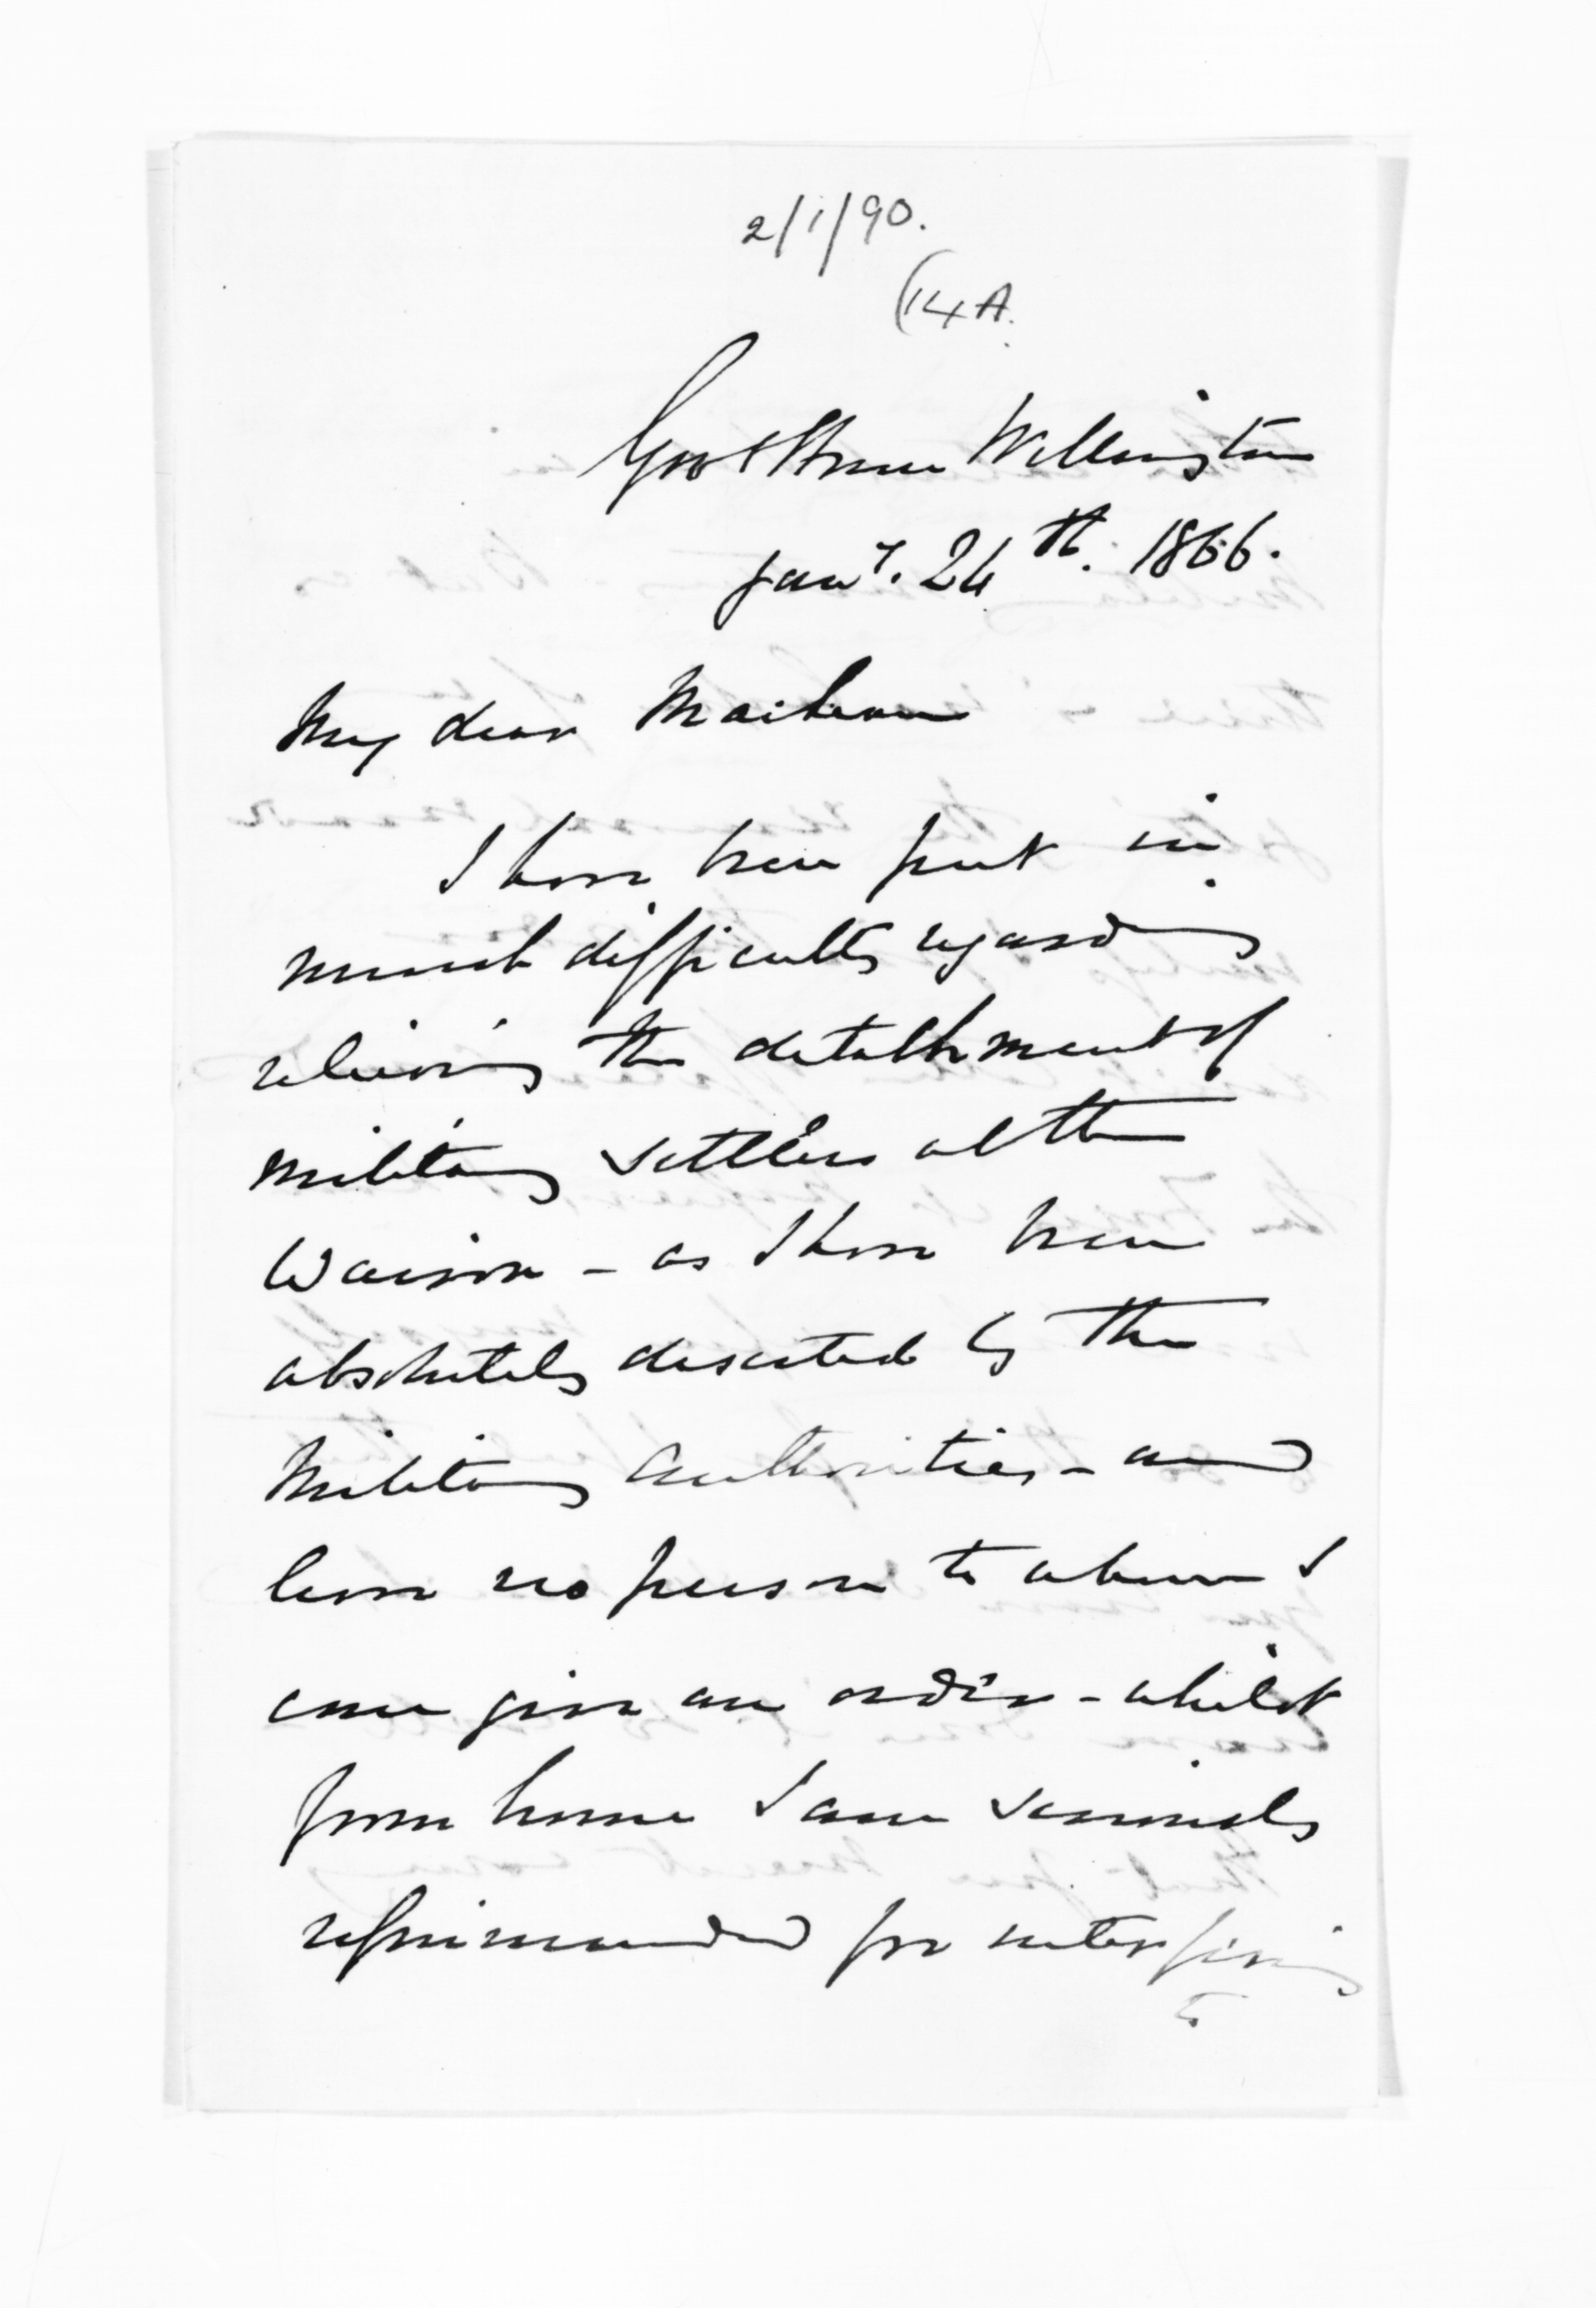 2/1/90.
(14A.
Govt House Wellington
Jany. 24th. 1866.
My dear McLean
I have been put in
much difficulty regarding
relieving the detachment of
military settlers at the
Wairoa - as I have been
absolutely deserted by the
Military authorities - and
have no person to whom I
can give an order - whilst
from home I am seriously
reprimanded for interfering
to